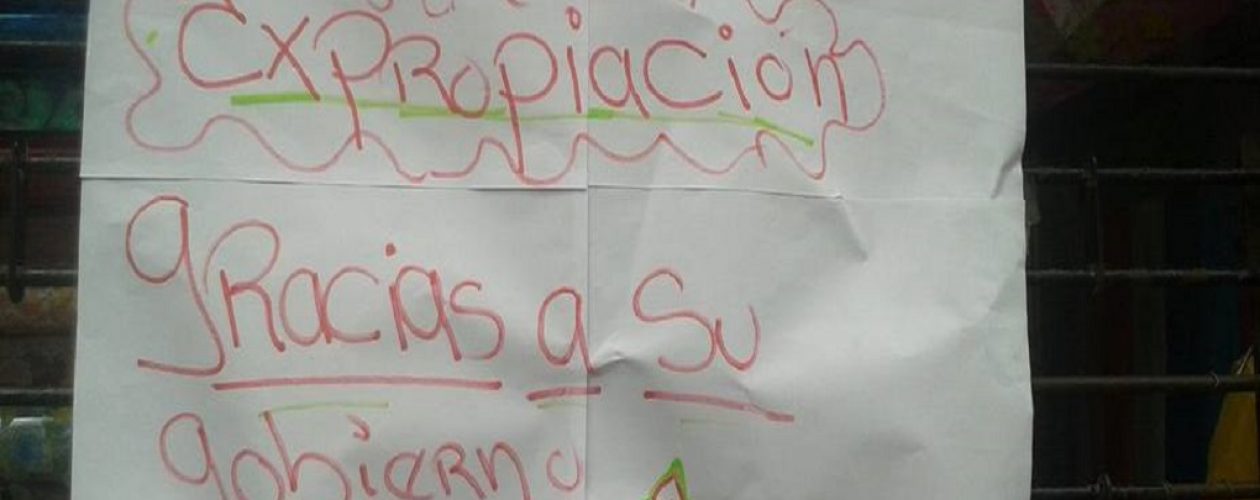 Expropiación
gracias a Su
gobierno